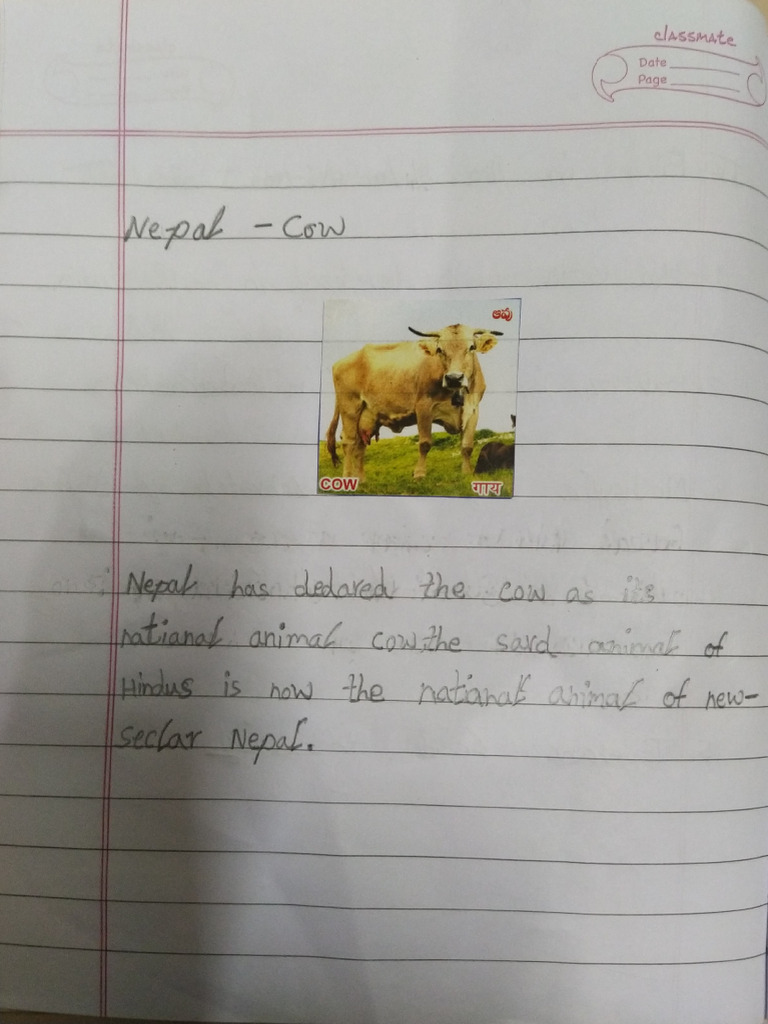 classmate
Date
Page
Nepal - Cow
ఆవు
COW
गाय
Nepal has dedared the cow as its
natianal animal cow,the sard animal of
Hindus is now the natianal animal of new-
seclar Nepal.